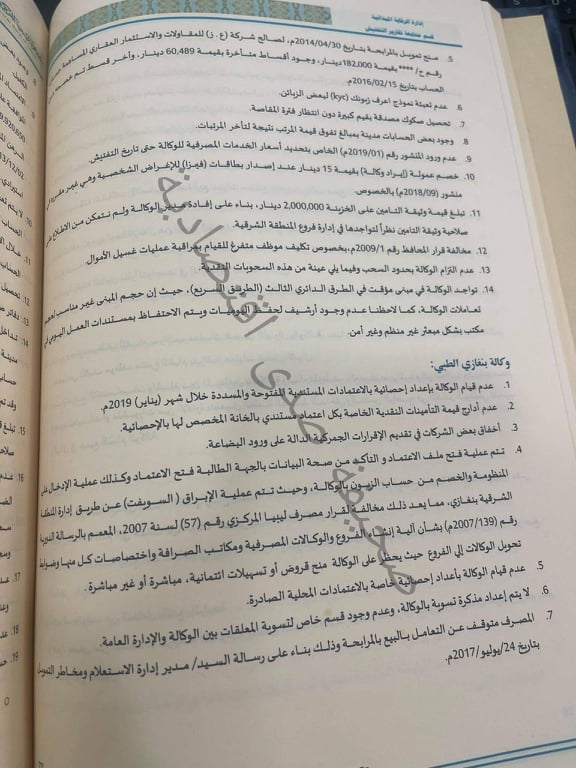 إدارة الرقابة الميدانية
قسم متابعة تقارير التفتيش
5. منح تمويل بالمرابحة بتاريخ 2014/04/30م، لصالح شركة (ع. ز) للمقاولات والاستثمار العقاري المساهمة
رقم ح/ **** بقيمة 182,000 دينار، وجود أقساط متأخرة بقيمة 60,489 دينار، وأخر قسط تم خصمه
الحساب بتاريخ 2016/02/15م.
6. عدم تعبئة نموذج اعرف زبونك (kyc) لبعض الزبائن.
7. تحصيل صكوك مصدقة بقيم كبيرة دون انتظار فترة المقاصة.
8. وجود بعض الحسابات مدينة بمبالغ تفوق قيمة المرتب نتيجة لتأخر المرتبات.
9. عدم ورود المنشور رقم (2019/01م) الخاص بتحديد أسعار الخدمات المصرفية للوكالة حتى تاريخ التفتيش.
10. خصم عمولة (إيراد وكالة) بقيمة 15 دينار عند إصدار بطاقات (فيزا) للإغراض الشخصية وهي غير
منشور (2018/09م) بالخصوص.
11. تبلغ قيمة وثيقة التامين على الخزينة 2,000,000 دينار، بناء على إفادة مدير الوكالة ولم نتمكن من الاطلاع
صلاحية وثيقة التامين نظراً لتواجدها في إدارة فروع المنطقة الشرقية.
12. مخالفة قرار المحافظ رقم 2009/1م، بخصوص تكليف موظف متفرغ للقيام بمراقبة عمليات غسيل الأموال.
13. عدم التزام الوكالة بحدود السحب وفيما يلي عينة من هذه السحوبات النقدية.
14. تواجد الوكالة في مبنى مؤقت في الطرق الدائري الثالث (الطريق السريع)، حيث إن حجم المبنى غير مناسب لحجم
تعاملات الوكالة، كما لاحظنا عدم وجود أرشيف لحفظ اليوميات ويتم الاحتفاظ بمستندات العمل اليومي في
مكتب بشكل مبعثر غير منظم وغير أمن.
وكالة بنغازي الطبي:
1. عدم قيام الوكالة بإعداد إحصائية بالاعتمادات المستندية المفتوحة والمسددة خلال شهر (يناير) 2019م.
2. عدم أدارج قيمة التأمينات النقدية الخاصة بكل اعتماد مستندي بالخانة المخصص لها بالإحصائية.
3. أخفاق بعض الشركات في تقديم الإقرارات الجمركية الدالة على ورود البضاعة.
4. تتم عملية فتح ملف الاعتماد و التأكد من صحة البيانات بالجهة الطالبة فتح الاعتماد وكذلك عملية الإدخال على
المنظومة والخصم من حساب الزبون بالوكالة، وحيث تتم عملية الإبراق (السويفت) عن طريق إدارة المنطقة
الشرقية بنغازي، مما يعد ذلك مخالفة لقرار مصرف ليبيا المركزي رقم (57) لسنة 2007، المعمم بالرسالة الدورية
رقم (2007/139م) بشأن آلية الفروع والوكالات المصرفية ومكاتب الصرافة واختصاصات كل منها وضوابط
تحويل الوكالات إلي الفروع حيث يحظر على الوكالة منح قروض أو تسهيلات ائتمانية، مباشرة أو غير مباشرة.
5. عدم قيام الوكالة بأعداد إحصائية خاصة بالاعتمادات المحلية الصادرة.
6. لا يتم إعداد مذكرة تسوية بالوكالة، وعدم وجود قسم خاص لتسوية المعلقات بين الوكالة والإدارة العامة.
7. المصرف متوقف عن التعامل بالبيع بالمرابحة وذلك بناء على رسالة السيد/ مدير إدارة الاستعلام ومخاطر التمويل
بتاريخ 24/يوليو/2017م.
صحيفة صدى اقتصادية